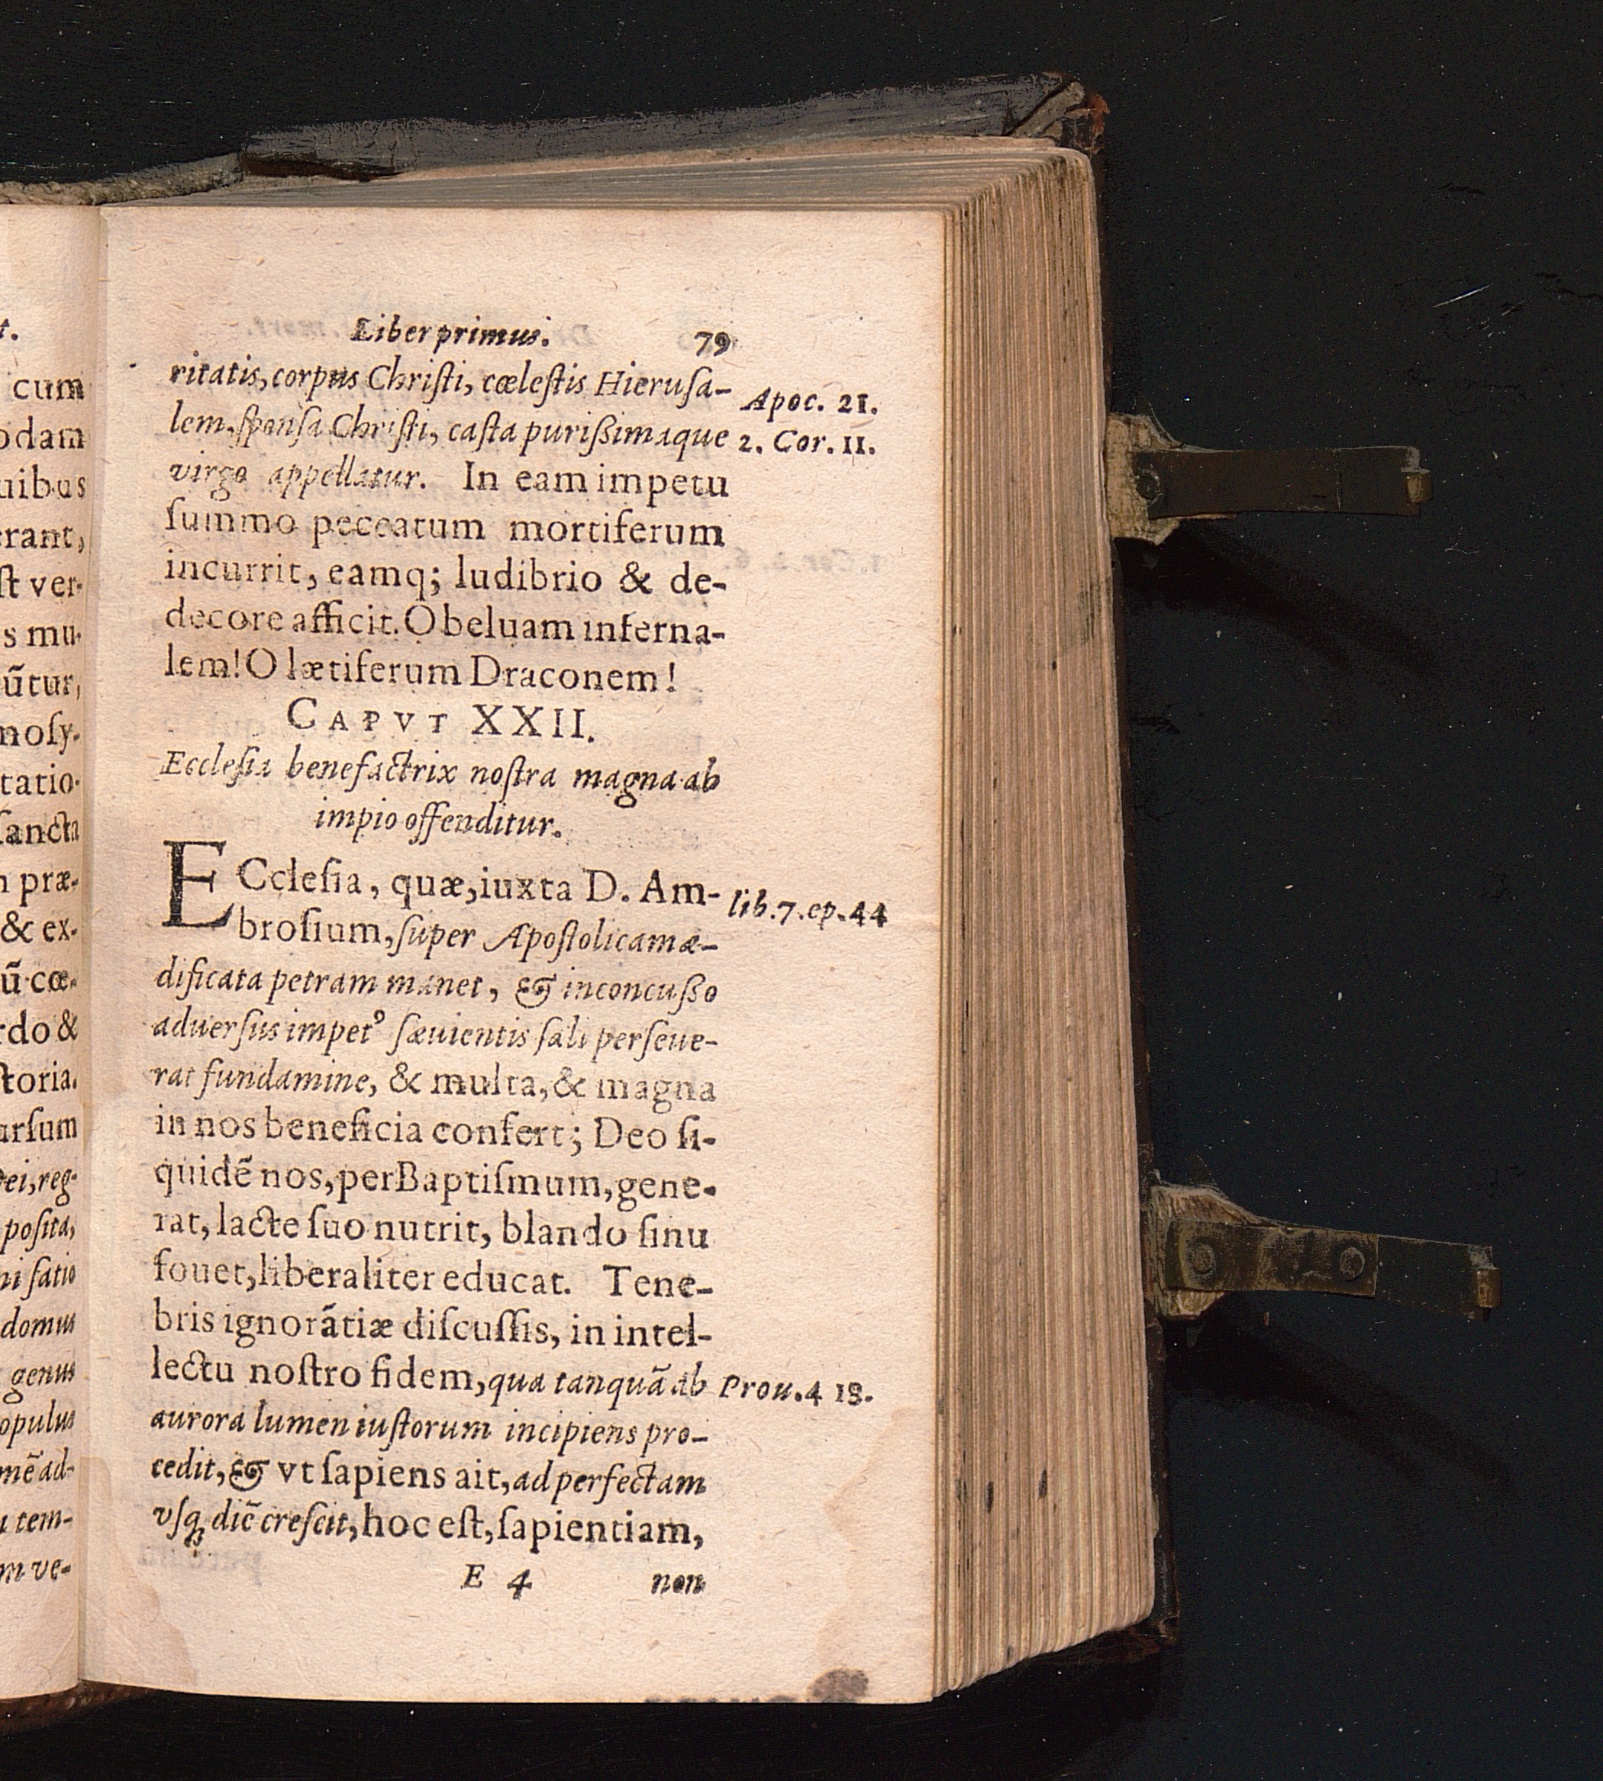 t.
cum
odam
uibus
erant,
ſt ver-
s mu-
ũtur,
noſy-
tatio-
ſancta
n præ-
& ex-
ũ cœ-
rdo &
ſtoria.
urſum
Dei, reg-
poſita,
ni ſatio
domus
genus
opulus
mẽ ad-
u tem-
m ve-
Liber primus. 79
ritatis, corpus Chriſti, cœleſtis Hieruſa-
Apoc. 21.
lem, ſponſa Chriſti, caſta purißimaque
2. Cor. 11.
virgo appellatur. In eam impetu
ſummo peccatum mortiferum
incurrit, eamq; ludibrio & de-
decore afficit. O beluam inferna-
lem! O lætiferum Draconem!
CAPVT XXII.
Eccleſia benefactrix noſtra magna ab
impio offenditur.
ECcleſia, quæ, iuxta D. Am-
lib. 7. ep. 44
broſium, ſuper Apoſtolicam æ-
dificata petram manet, & inconcußo
aduerſus impetꝰ ſæuientis ſali perſeue-
rat fundamine, & multa, & magna
in nos beneficia confert; Deo ſi-
quidẽ nos, per Baptiſmum, gene-
rat, lacte ſuo nutrit, blando ſinu
fouet, liberaliter educat. Tene-
bris ignorãtiæ diſcuſſis, in intel-
lectu noſtro fidem, qua tanquã ab
Prou. 4 18.
aurora lumen iuſtorum incipiens pro-
cedit, & vt ſapiens ait, ad perfectam
vſq; diẽ creſcit, hoc eſt, ſapientiam,
E 4 non